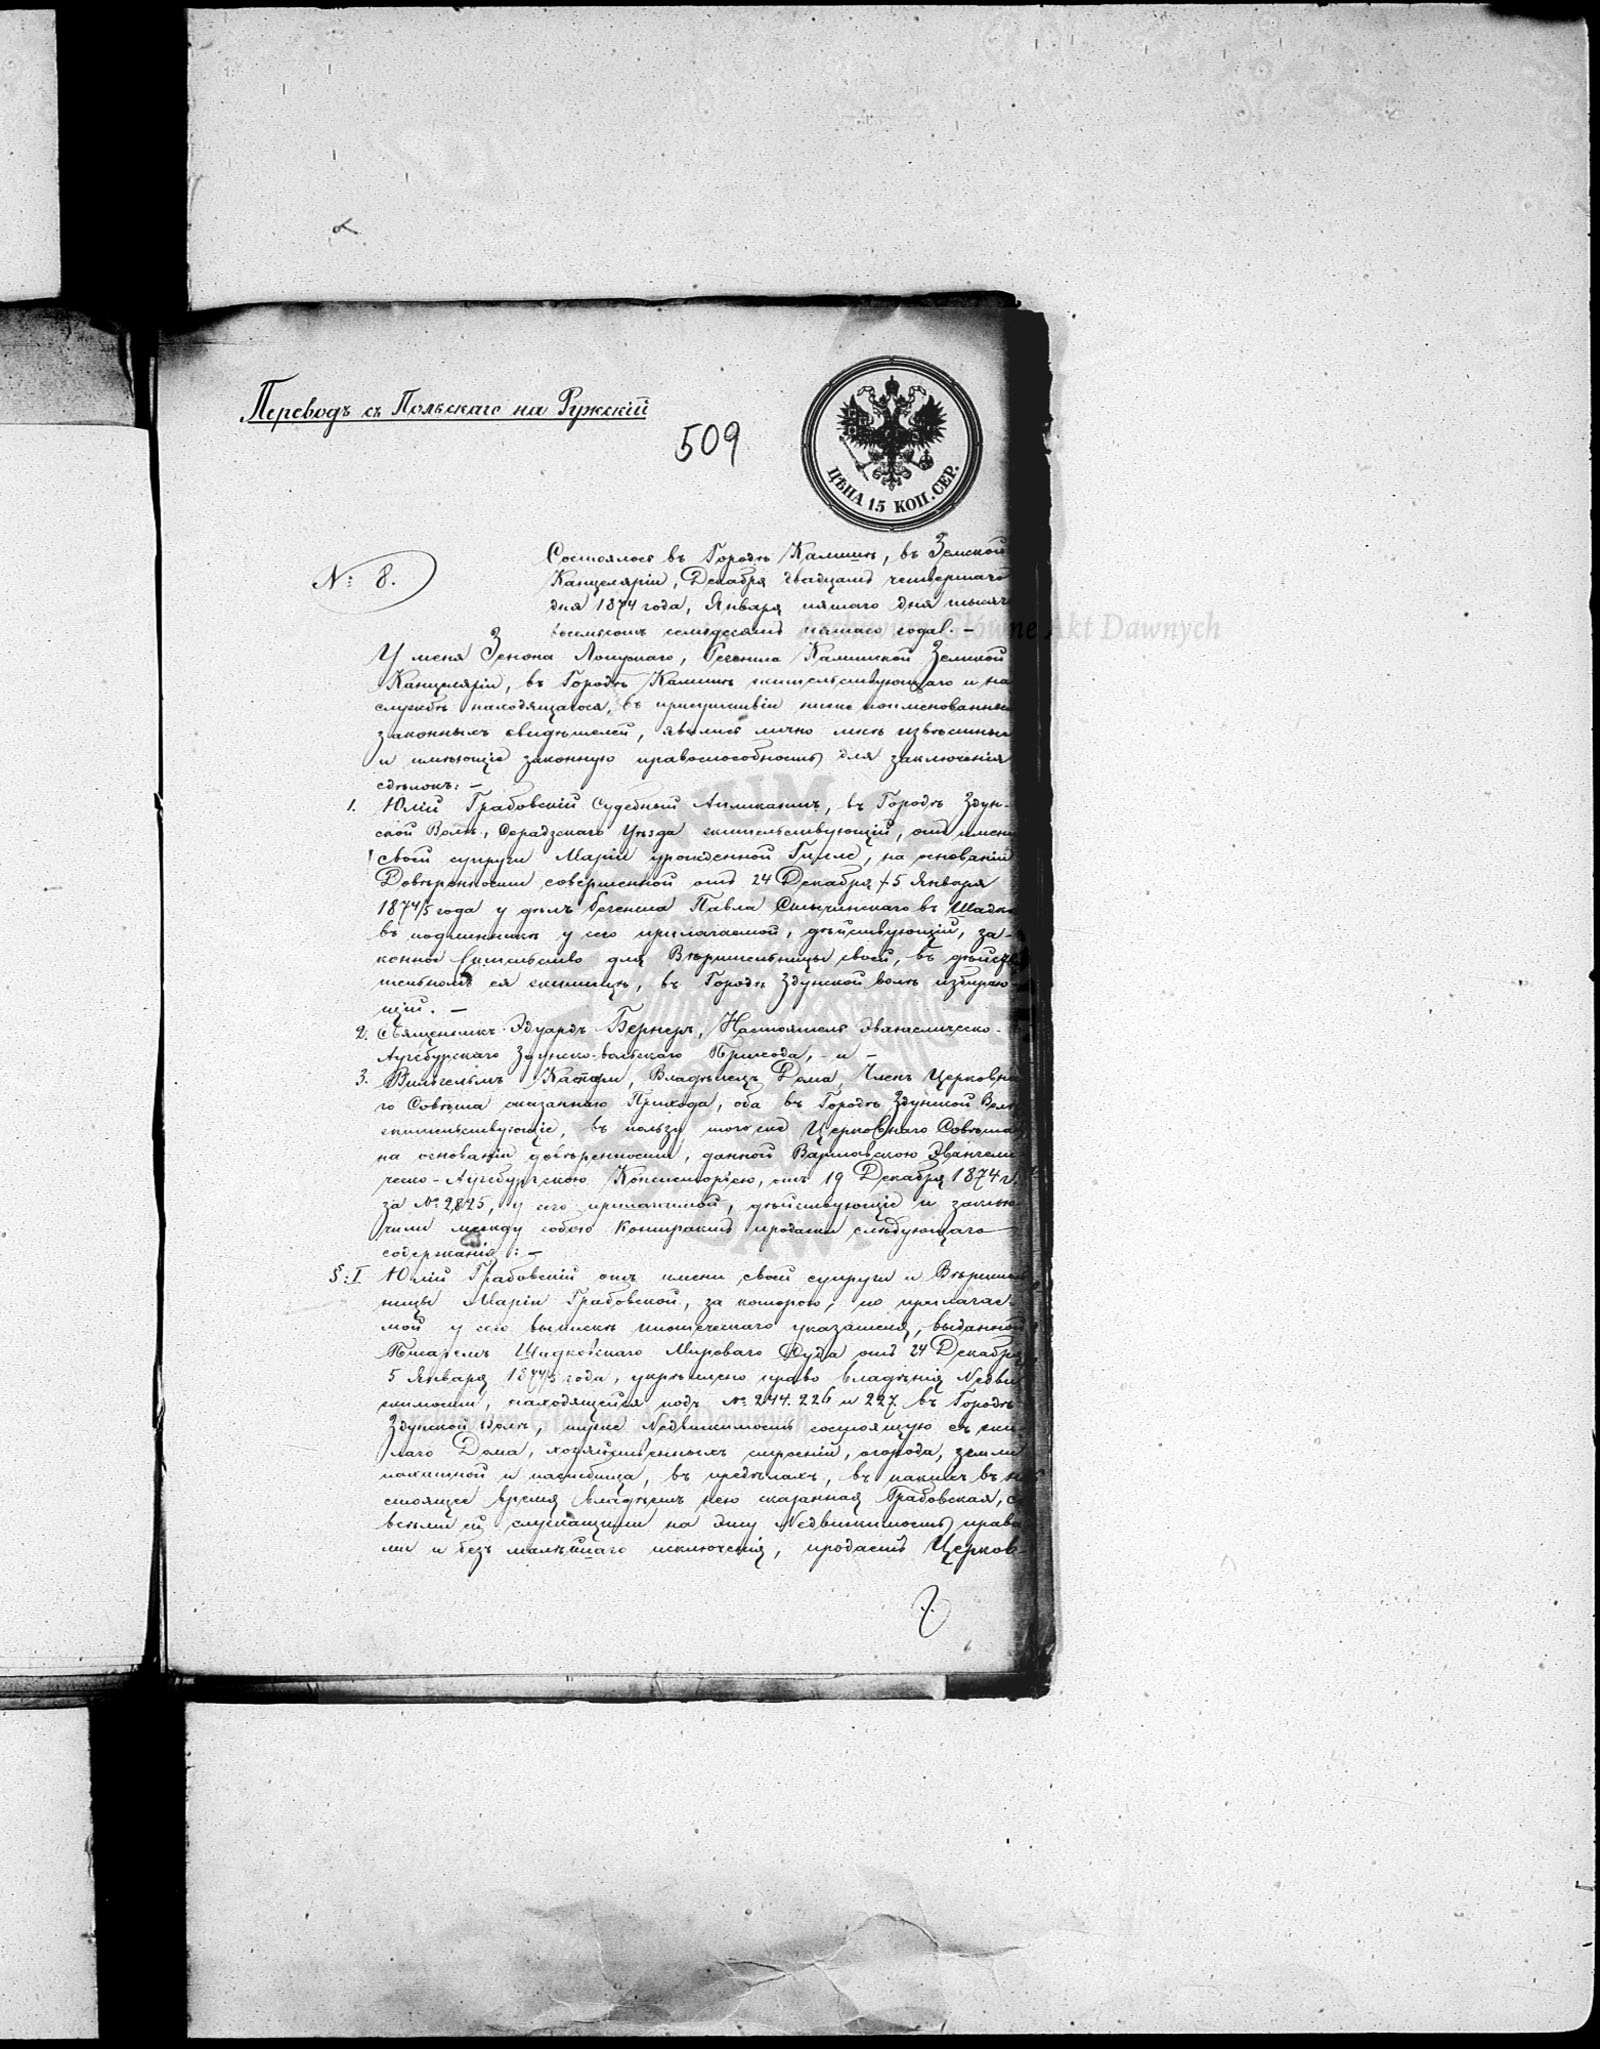 Переводъ съ Польскаго на Рускій
509
ЦѢНА 15 КОП. СЕР.
№ 8.
Состоялось въ Городѣ Калишѣ, въ Земской
Канцеляріи, Декабря двадцать четвертаго
дня 1874 года, Января пятаго дня тысяч
восемьсотъ семьдесятъ пятаго года. –
У меня Зенона Лопускаго, Регента Калишской Земской
Канцеляріи, въ Городѣ Калишѣ жительствующаго и на
службѣ находящагося, въ присутствіи ниже поименованны
законныхъ свидѣтелей, явились лично мнѣ извѣстные
и имѣющіе законную правоспособность для заключенія
сдѣлокъ: –
1. Юлій Грабовскій Судебный Апликантъ, въ Городѣ Здун-
ской Волѣ, Серадзскаго Уѣзда жительствующій, отъ имени
своей супруги Маріи урожденной Гилле, на основаніи
Довѣренности совершенной отъ 24 Декабря / 5 Января
1874/5 года у дѣлъ Регента Павла въ Шадкѣ
въ подлинникѣ у сего прилагаемой, дѣйствующій, за-
конное жительство для Вѣрительницы своей, въ дѣйств
тельномъ ея жилищѣ, въ Городѣ Здунской Волѣ избираю-
щій. –
2. Священникъ Эдуардъ Бернеръ, Настоятель Эвангелическо-
Аугсбургскаго Здунско-вольскаго Прихода, – и –
3. Вильгельмъ Владѣлецъ Дома, Членъ Церковна
го Совѣта сказаннаго Прихода, оба въ Городѣ Здунской Волѣ
жительствующіе, въ пользу того же Церковнаго Совѣта
на основаніи довѣренности, данной Варшавскою Эвангели
ческо-Аугсбургскою Консисторіею, отъ 19 Декабря 1874 г.
за № 2,825, у сего прилагаемой, дѣйствующіе и заклю
чили между собою Контрактъ продажи слѣдующаго
содержанія: –
§: I Юлій Грабовскій отъ имени своей супруги и Вѣритель
ницы Маріи Грабовской, за которою, по прилагае-
мой у сего выпискѣ ипотечнаго указателя, выданной
Писаремъ Шадковскаго Мироваго Суда отъ 24 Декабря
5 Января 1874/5 года, укрѣплено право владѣнія Недви
жимости, находящейся подъ № 244. 226 и 227 въ Городѣ
Здунской Волѣ, Недвижимость состоящую съ жи-
лаго Дома, хозяйственныхъ строеній, огорода, земли
пахатной и пастбища, въ предѣлахъ, въ какихъ въ на
стоящее время владѣетъ нею сказанная Грабовская, с
всѣми ей служащими на эту Недвижимость права
ми и безъ малѣйшаго исключенія, продаетъ Церков-
Archiwum Główne Akt Dawnych
Archiwum Główne Akt Dawnych